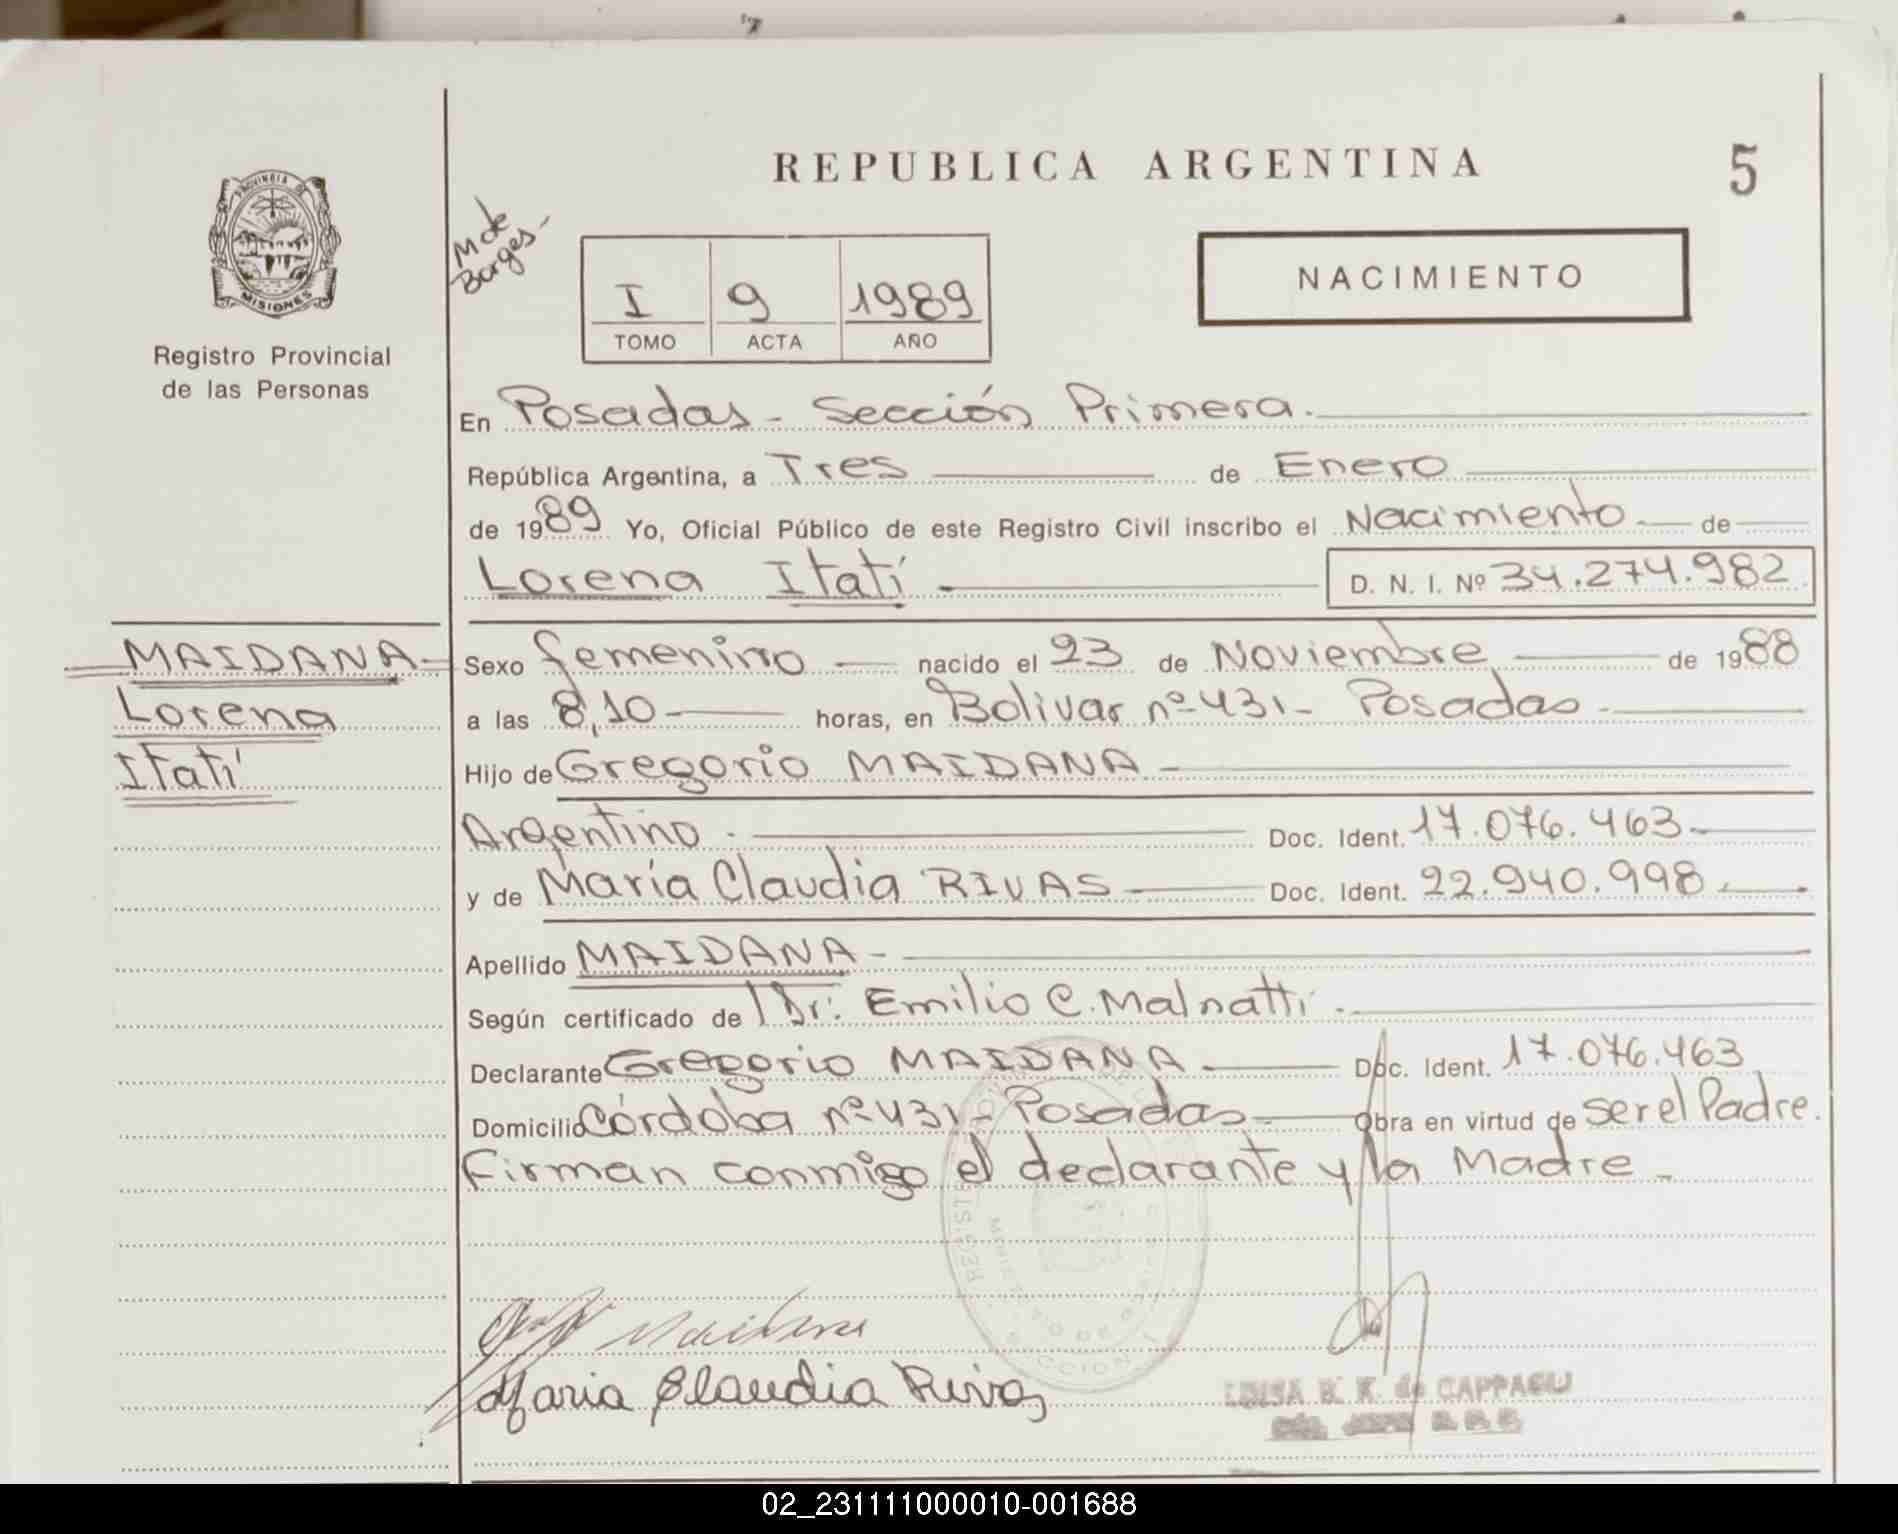 REPUBLICA ARGENTINA
5
PROVINCIA DE
MISIONES
Registro Provincial
de las Personas
M de
Borges-
I 9 1989
TOMO ACTA AÑO
NACIMIENTO
En Posadas - Sección Primera.
República Argentina, a Tres de Enero
de 1989 Yo, Oficial Público de este Registro Civil inscribo el Nacimiento de
Lorena Itatí D. N. I. Nº 34.274.982
MAIDANA
Lorena
Itatí
Sexo femenino nacido el 23 de Noviembre de 1988
a las 8,10 horas, en Bolivar nº 431 - Posadas
Hijo de Gregorio MAIDANA
Argentino. Doc. Ident. 17.076.463
y de María Claudia RIVAS Doc. Ident. 22.940.998
Apellido MAIDANA
Según certificado de Dr: Emilio C. Malnatti
Declarante Gregorio MAIDANA Doc. Ident. 17.076.463
Domicilio Córdoba nº 431 - Posadas Obra en virtud de ser el Padre.
Firman conmigo el declarante y la Madre -
Maidana
Maria Claudia Rivas
LUISA B. K. de CAPPAGLI
02_231111000010-001688